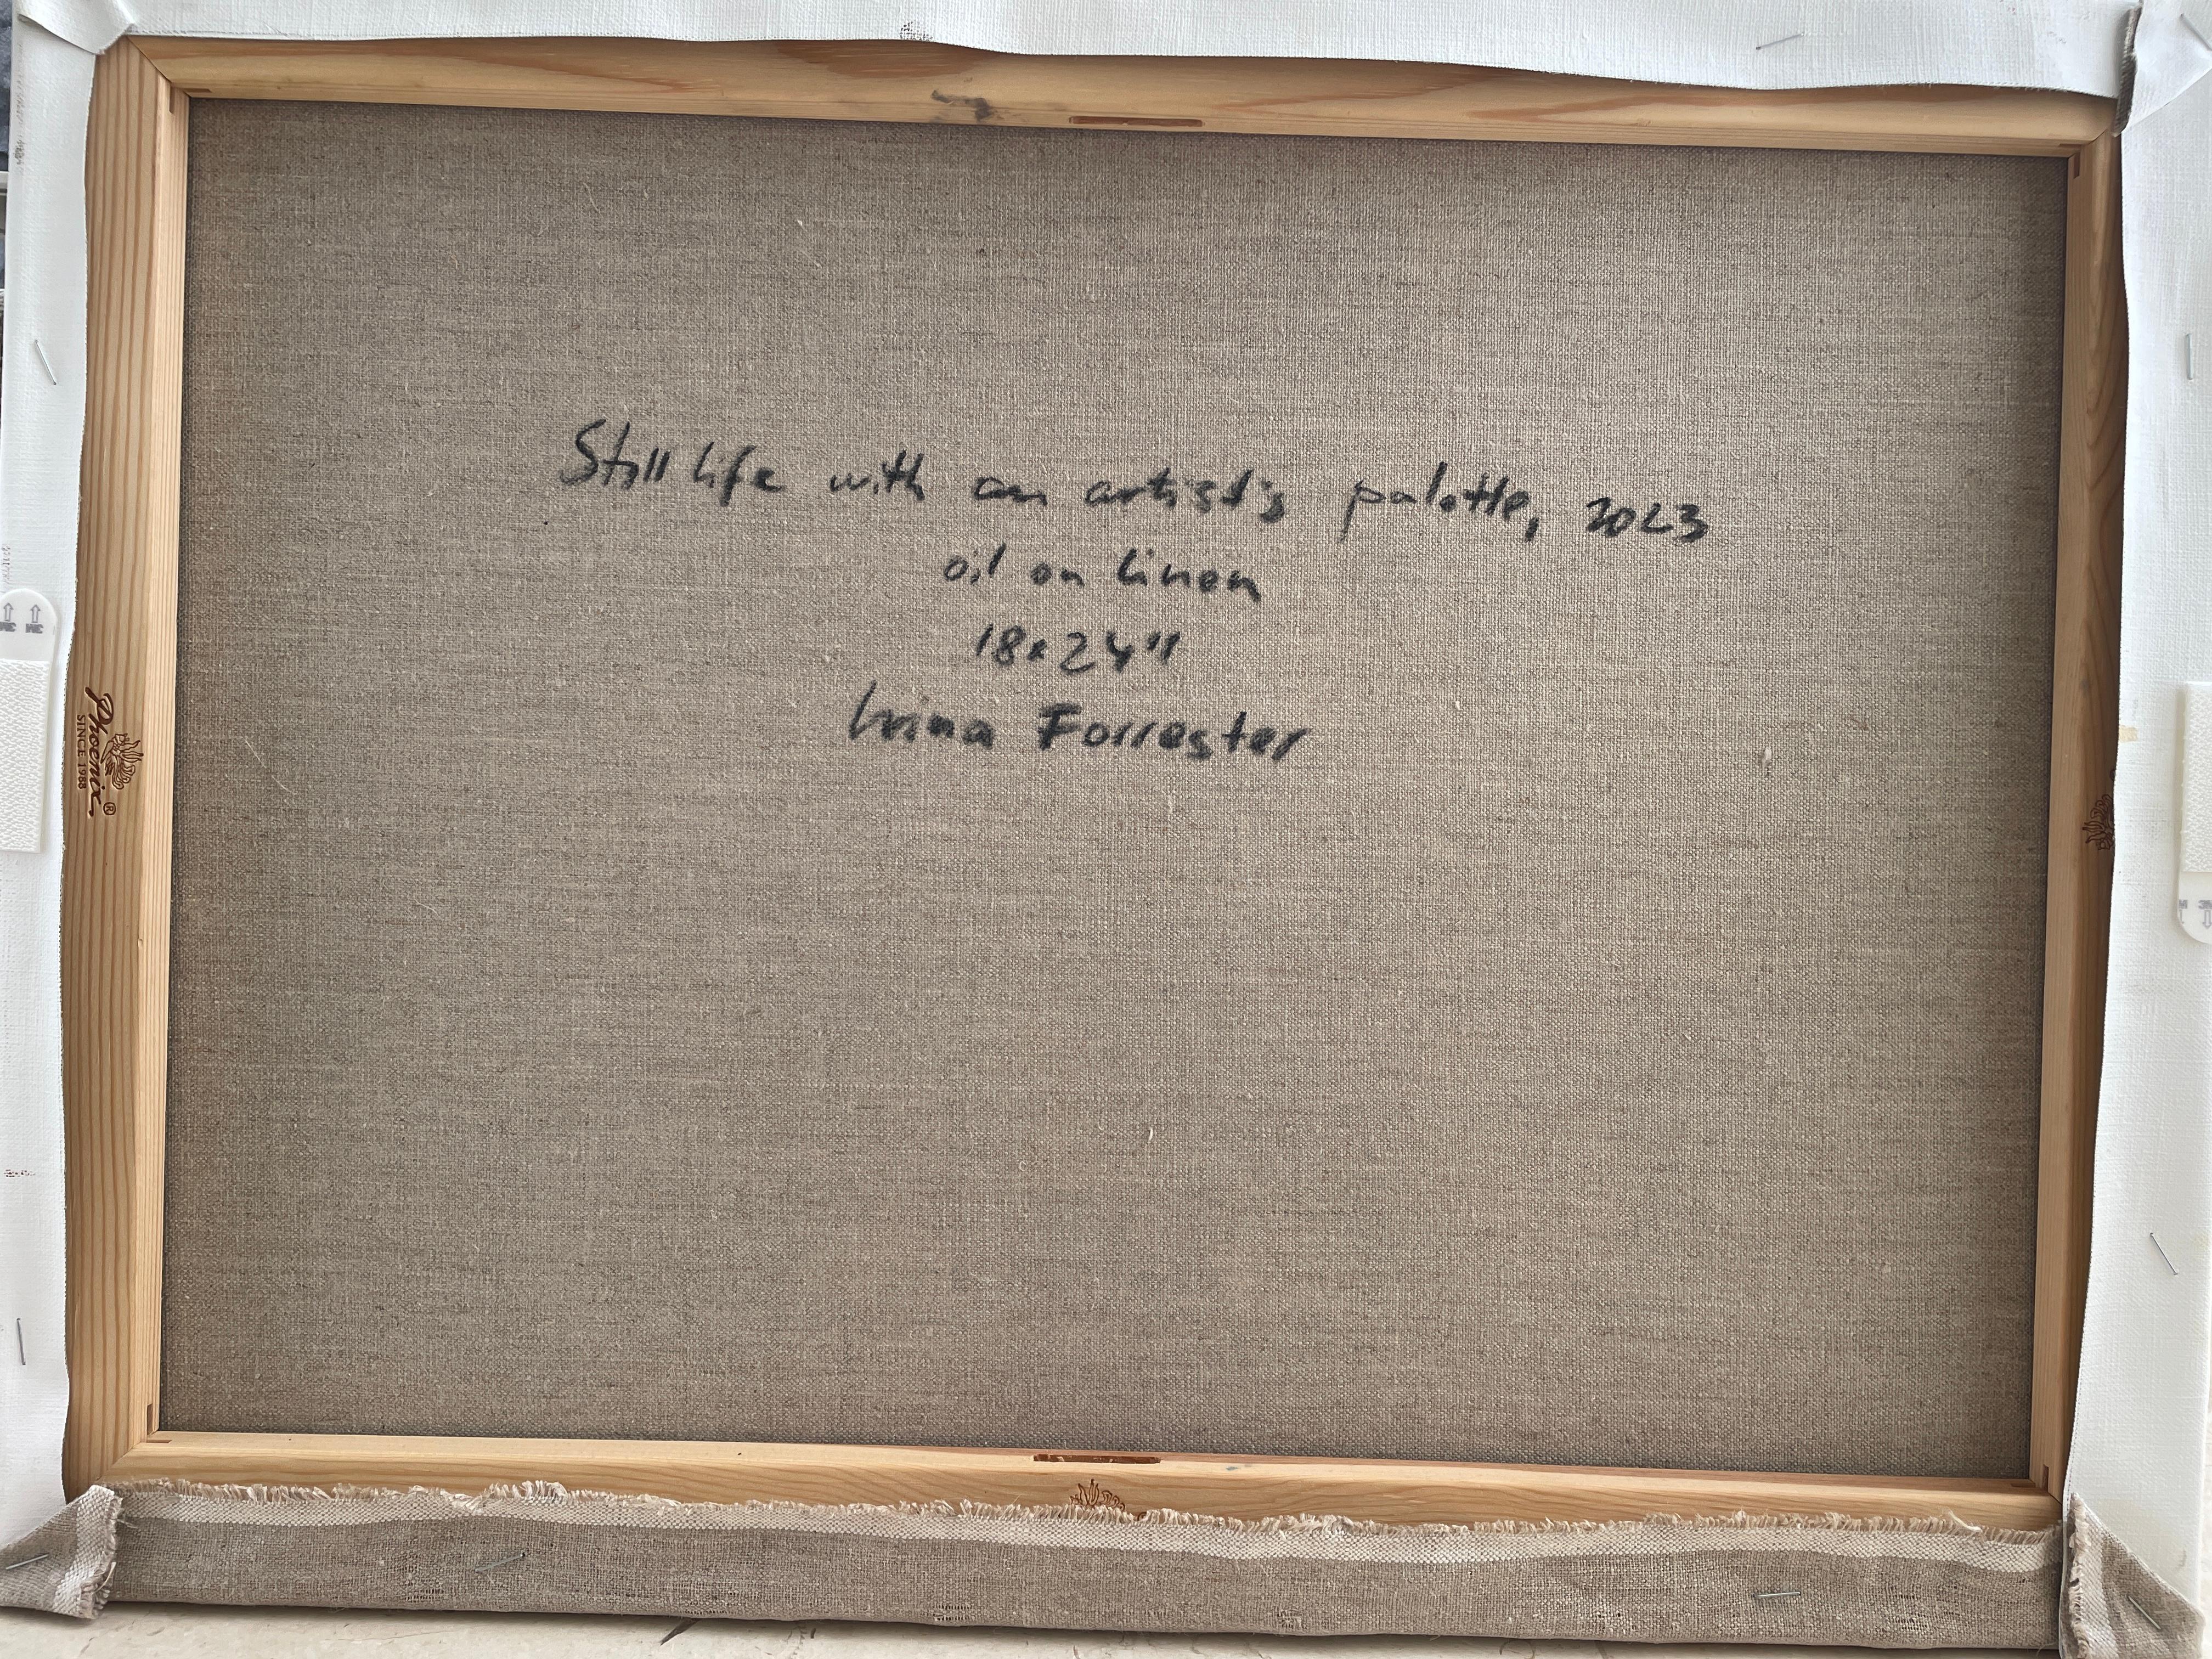 Still life with an artist's palette, 2023
oil on linen
18x24"
Irina Forrester
Phoenix®
SINCE 1988
3M 3M